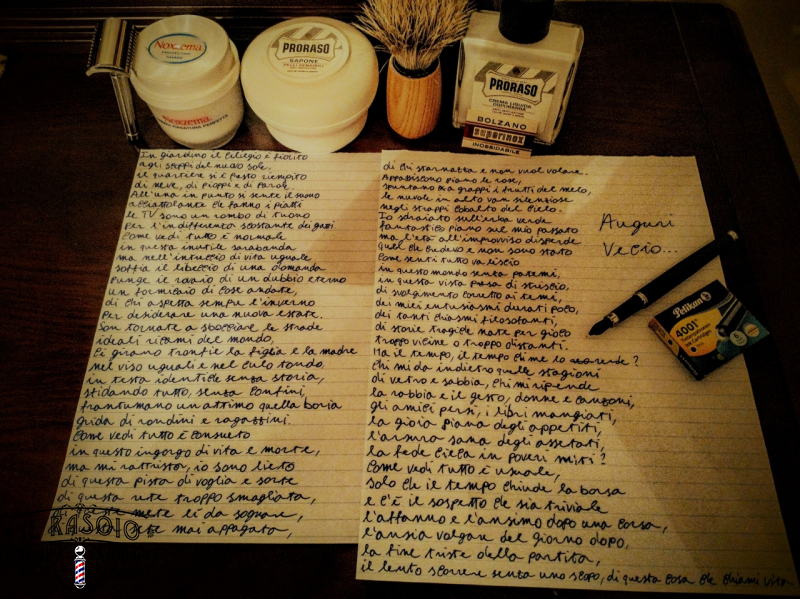 Noxzema
Noxzema
PRORASO
SAPONE
PELLI SENSIBILI
PRORASO
CREMA LIQUIDA
DOPOBARBA
BOLZANO
superinox
INOSSIDABILE
In giardino il ciliegio è fiorito
agli scoppi del nuovo sole,
il quartiere si è presto riempito
di neve, di pioppi e di parole.
All'una in punto si sente il suono
acciottolante che fanno i piatti
le TV sono un rombo di tuono
per l'indifferenza scostante dei gatti
Come vedi tutto è normale
in questa inutile sarabanda
ma nell'intreccio di vita uguale
soffia il libeccio di una domanda
punge il rovaio di un dubbio eterno
un formicaio di cose andate,
di chi aspetta sempre l'inverno
per desiderare una nuova estate.
Son tornate a sbocciare le strade
ideali ricami del mondo,
ci girano tronfie la figlia e la madre
nel viso uguali e nel culo tondo,
in testa identiche senza storia,
sfidando tutto, senza confini,
frantumano un attimo quella boria
grida di rondini e ragazzini.
Come vedi tutto è consueto
in questo ingorgo di vita e morte,
ma mi rattristo, io sono lieto
di questa pista di voglia e sorte
di questa rete troppo smagliata,
mete lì da sognare,
mai appagata,
di chi starnazza e non vuol volare.
Appassiscono piano le rose,
spuntano a grappi i frutti del melo,
le nuvole in alto van silenziose
negli strappi cobalto del cielo.
Io sdraiato sull'erba verde
fantastico piano sul mio passato
ma l'età all'improvviso disperde
quel che credevo e non sono stato
Come senti tutto va liscio
in questo mondo senza patemi,
in questa vista presa di striscio,
di svolgimento corretto ai temi,
dei miei entusiasmi durati poco,
dei tanti chiasmi filosofanti,
di storie tragiche nate per gioco
troppo vicine o troppo distanti.
Ma il tempo, il tempo chi me lo rende?
Chi mi dà indietro quelle stagioni
di vetro e sabbia, chi mi riprende
la rabbia e il gesto, donne e canzoni,
gli amici persi, i libri mangiati,
la gioia piana degli appetiti,
l'arsura sana degli assetati,
la fede cieca in poveri miti?
Come vedi tutto è usuale,
solo che il tempo chiude la borsa
e c'è il sospetto che sia triviale
l'affanno e l'ansimo dopo una corsa,
l'ansia volgare del giorno dopo,
la fine triste della partita,
il lento scorrere senza uno scopo, di questa cosa che chiami vita
Auguri
Vecio...
Pelikan
4001
RASOIO